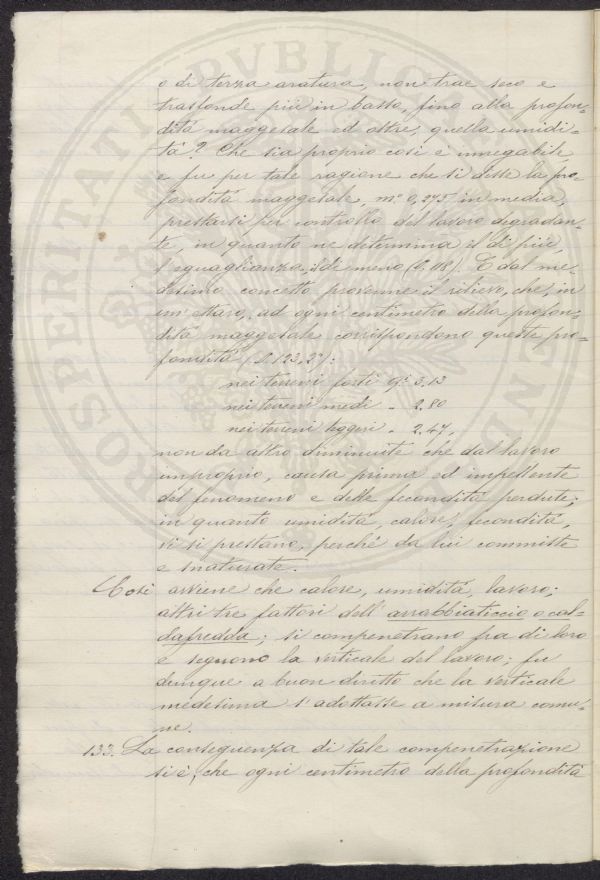 PROSPERITATI PVBLICAE
o di terza aratura, non trae seco e
trasfonde più in basso, fino alla profon-
dità maggesale ed oltre, quella umidi-
tà? Che sia proprio così è innegabile,
e fu per tale ragione che si dette la pro-
fondità maggesale, m.° 0,275 in media,
prestarsi per controllo del lavoro degradan-
te, in quanto ne determina il di più,
l'eguaglianza, il di meno (§. 118). E dal me-
desimo concetto provenne il rilievo, che, in
un ettaro, ad ogni centimetro della profon-
dità maggesale corrispondono queste pro-
fondità (§. 123, 2°):
nei terreni forti q.i 3,13
nei terreni medi " 2,80
nei terreni leggeri " 2,47,
non da altro diminuite che dal lavoro
improprio, causa prima ed impellente
del fenomeno e delle fecondità perdute;
in quanto umidità, calore, fecondità,
vi si prestano, perché da lui commiste
e snaturate.
Così avviene che calore, umidità, lavoro;
altri tre fattori dell'arrabbiaticcio o cal-
dafredda; si compenetrano fra di loro
e seguono la verticale del lavoro; fu
dunque a buon diritto che la verticale
medesima s'adottasse a misura comu-
ne.
133. La conseguenza di tale compenetrazione
si è, che ogni centimetro della profondità